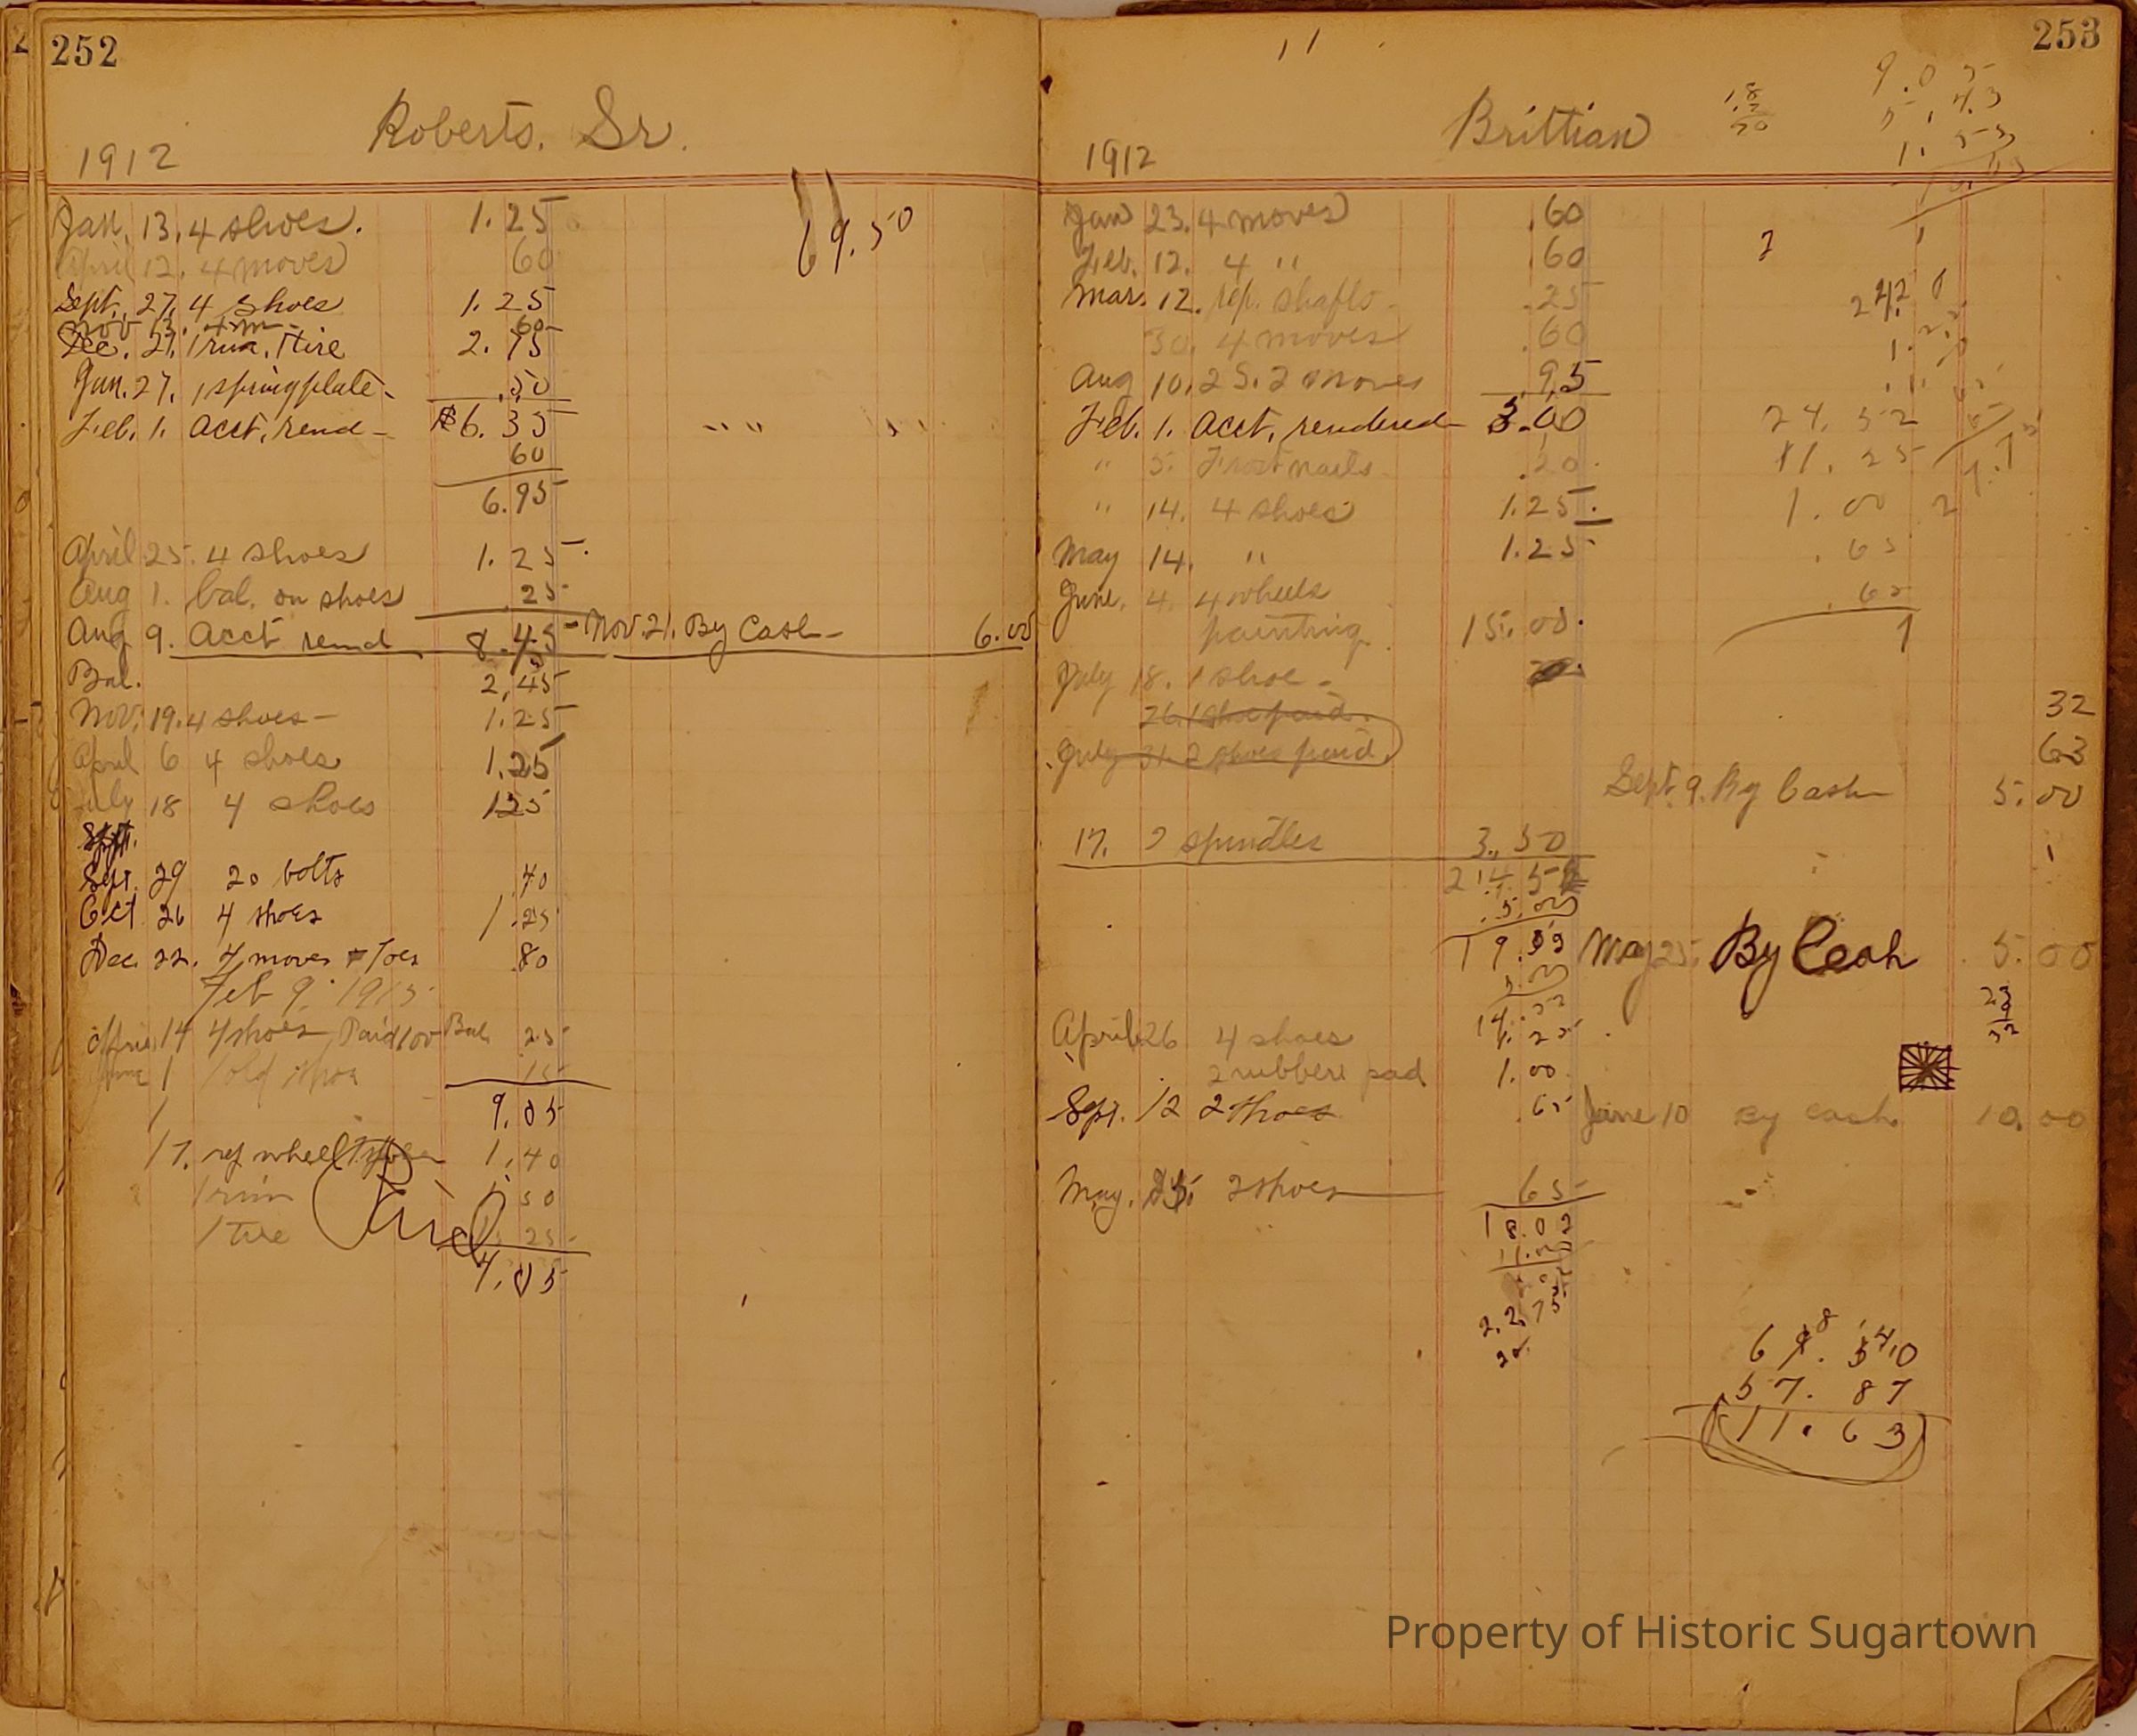 252
Roberts, Sr.
1912
69.50
Jan. 13. 4 shoes. 1.25
April 12. 4 moves 60
Sept. 27. 4 shoes 1.25
Nov 13. 4 m 60
Dec. 21. 1 rim, 1 tire 2.75
Jan. 27. 1 spring plate .50
Feb. 1. Acct. rend $6.35
60
6.95
April 25. 4 shoes 1.25
Aug 1. bal. on shoes 25
Aug 9. Acct rend 8.45 Nov. 21. By Cash 6.00
Bal. 2.45
Nov. 19. 4 shoes 1.25
April 6 4 shoes 1.25
July 18 4 shoes 125
Sept.
Sept. 29 20 bolts .40
Oct 26 4 shoes 1.25
Dec 22. 4 moves + Toes .80
Feb 9. 1915
14 4 shoes Paid 100 Bal. 25
1 1 old shoe 15
9.05
17. rep wheel 1.40
1 rim 1.50
1 tire 25
Paid
4.05
253
11
Brittian
1912
9.05
5.43
1.55
Jan 23. 4 moves .60
Feb. 12. 4 " .60
Mar. 12. rep. shafts .25
30. 4 moves .60
Aug 10. 2 S. 2 moves .95
Feb. 1. Acct. rendered 3.00
" 5. Frost nails .20
" 14. 4 shoes 1.25
May 14. " 1.25
June. 4. 4 wheels
painting 15.00
July 18. 1 shoe
26. 1 shoe paid.
July 31. 2 shoes paid.
24.52
11.25
1.00 2
.65
.65
32
63
Sept. 9. By Cash 5.00
17. 2 spindles 3.50
24.52
5.00
19.52 May 25. By Cash 5.00
5.00
14.52
April 26 4 shoes 1.25
2 rubber pad 1.00
Sept. 12 2 shoes .65 June 10 By cash 10.00
May. 25. 2 shoes 65
18.02
2.275
69.50
57.87
11.63
Property of Historic Sugartown